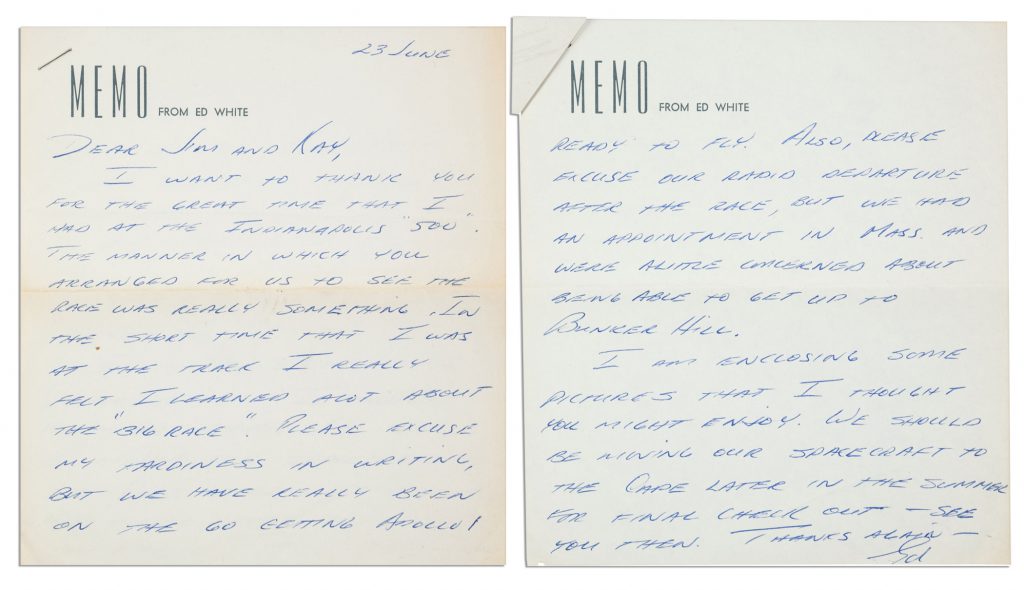 23 JUNE
MEMO FROM ED WHITE
DEAR JIM AND KAY,
I WANT TO THANK YOU
FOR THE GREAT TIME THAT I
HAD AT THE INDIANAPOLIS "500".
THE MANNER IN WHICH YOU
ARRANGED FOR US TO SEE THE
RACE WAS REALLY SOMETHING. IN
THE SHORT TIME THAT I WAS
AT THE TRACK I REALLY
FELT I LEARNED ALOT ABOUT
THE "BIG RACE". PLEASE EXCUSE
MY TARDINESS IN WRITING,
BUT WE HAVE REALLY BEEN
ON THE GO GETTING APOLLO I
MEMO FROM ED WHITE
READY TO FLY. ALSO, PLEASE
EXCUSE OUR RAPID DEPARTURE
AFTER THE RACE, BUT WE HAD
AN APPOINTMENT IN MASS. AND
WERE A LITTLE CONCERNED ABOUT
BEING ABLE TO GET UP TO
BUNKER HILL.
I AM ENCLOSING SOME
PICTURES THAT I THOUGHT
YOU MIGHT ENJOY. WE SHOULD
BE MOVING OUR SPACECRAFT TO
THE CAPE LATER IN THE SUMMER
FOR FINAL CHECK OUT – SEE
YOU THEN. THANKS AGAIN –
Ed